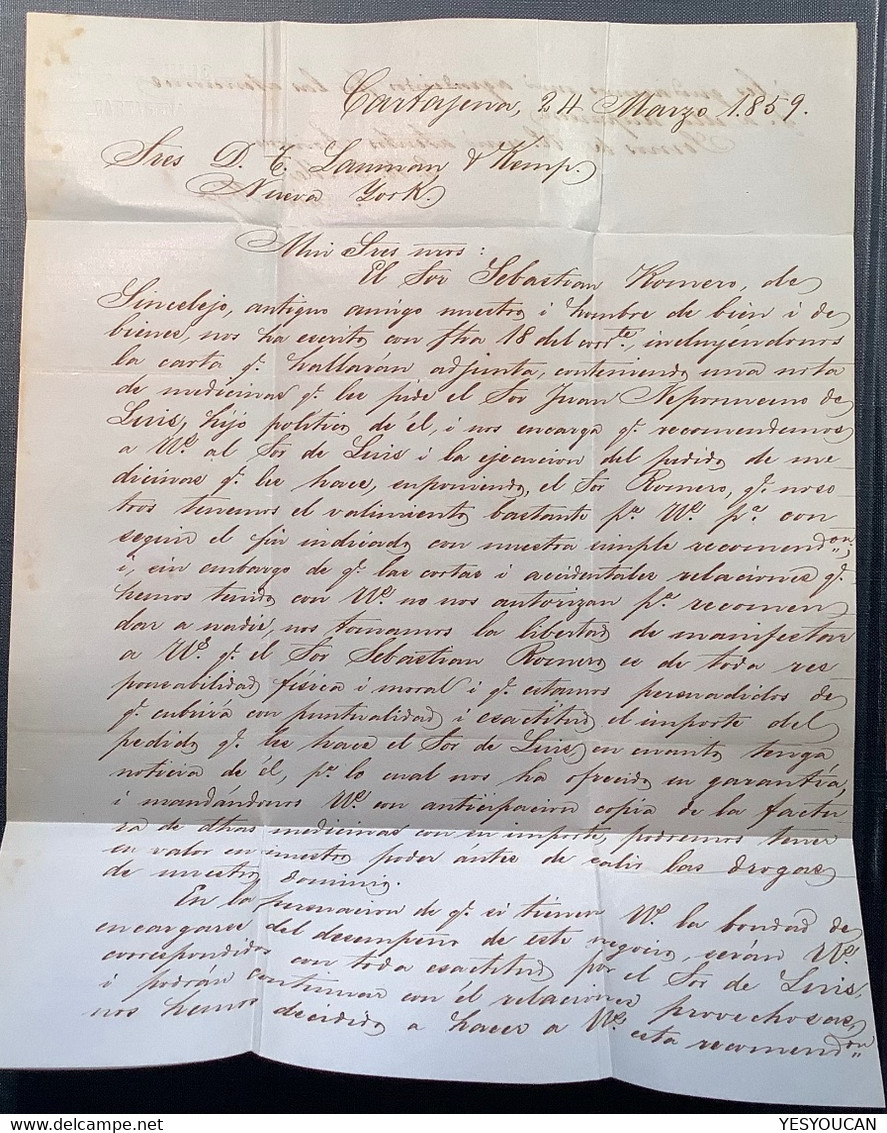 Cartajena, 24 Marzo 1.859.
Sres D. T. Lanman & Kemp.
Nueva York.
Mui Sres nros:
El Sor Sebastian Romero, de
Sincelejo, antiguo amigo nuestro i hombre de bien i de
bienes, nos ha escrito con fha 18 del corrte, incluyéndonos
la carta q. hallarán adjunta, conteniendo una nota
de medicinas q. les pide el Sor Juan Nepomuceno de
Luis, hijo político de él, i nos encarga q. recomendemos
a Ws. al Sor de Luis i la ejecucion del pedido de me
dicinas q. les hace, suponiendo, el Sor Romero, q. noso
tros tenemos el valimiento bastante pa. Ws. pa. con
seguir el fin indicado con nuestra simple recomendon.,
i, sin embargo de q. las cortas i accidentales relaciones q.
hemos tenido con Ws. no nos autorizan pa. recomen
dar a nadie, nos tomamos la libertad de manifestar
a Ws. q. el Sor Sebastian Romero es de toda res
ponsabilidad física i moral i q. estamos persuadidos de
q. cubrirá con puntualidad i esactitud el importe del
pedido q. les hace el Sor de Luis en cuanto tenga
noticia de él, pr. lo cual nos ha ofrecido su garantía,
i mandándonos Ws. con anticipacion copia de la factu
ra de dhas medicinas con su importe, podremos tener
su valor en nuestro poder ántes de salir las drogas
de nuestro dominio.
En la persuacion de q. si tienen Ws. la bondad de
encargarse del desempeño de este negocio, serán Ws.
correspondidos con toda esactitud por el Sor de Luis,
i podrán continuar con él relaciones provechosas,
nos hemos decidido a hacer a Ws. esta recomendon.
YESYOUCAN